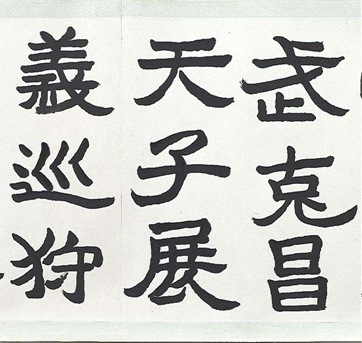 武克昌
天子展
義巡狩